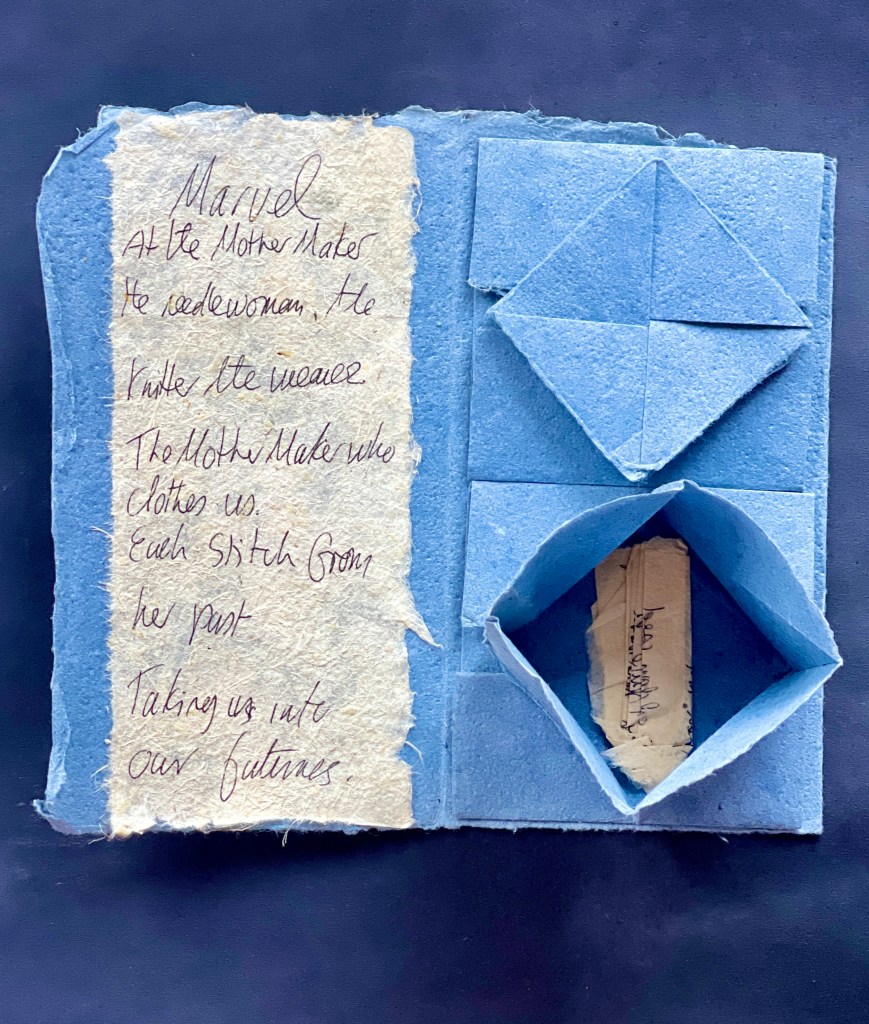 Marvel
At the Mother Maker
the needlewoman, the
Knitter the weaver
The Mother Maker who
clothes us.
Each stitch from
her past
Taking us into
our futures.